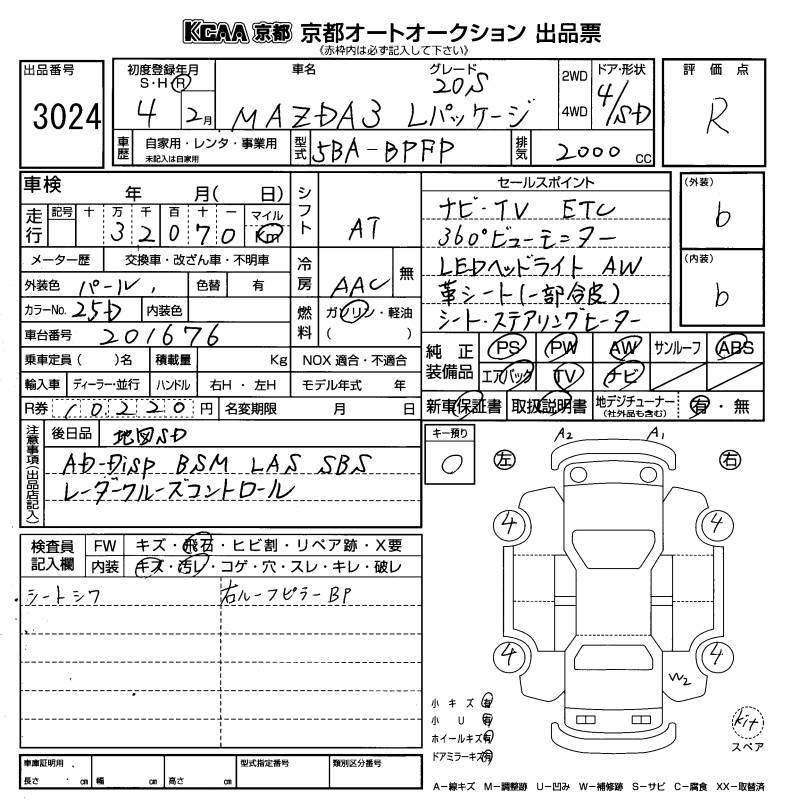 KCAA 京都 京都オートオークション 出品票
《赤枠内は必ず記入して下さい》
出品番号
3024
初度登録年月
S・H・R
4 2月
車名
MAZDA3
グレード
20S
Lパッケージ
2WD
4WD
ドア・形状
4/SD
評価点
R
車歴
自家用・レンタ・事業用
未記入は自家用
型式
5BA-BPFP
排気
2000 CC
車検
年 月( 日)
走行
記号 十 万 千 百 十 一
3 2 0 7 0
マイル
Km
メーター歴
交換車・改ざん車・不明車
外装色
パール
色替
有
カラーNo.
25D
内装色
車台番号
201676
乗車定員( )名
積載量
Kg
NOX 適合・不適合
輸入車
ディーラー・並行
ハンドル
右H・左H
モデル年式 年
R券
10,220円
名変期限
月 日
シフト
AT
冷房
AAC
無
燃料
ガソリン・軽油
( )
セールスポイント
ナビ・TV ETC
360°ビューモニター
LEDヘッドライト AW
革シート(一部合皮)
シート・ステアリングヒーター
(外装)
b
(内装)
b
純正装備品
PS PW AW サンルーフ ABS
エアバック TV ナビ
新車保証書
取扱説明書
地デジチューナー
(社外品も含む)
有・無
注意事項(出品店記入)
後日品
地図SD
AD-Disp BSM LAS SBS
レーダークルーズコントロール
キー預り
0
A2 A1
左 右
4 4
4 4
W2
検査員記入欄
FW
キズ・飛石・ヒビ割・リペア跡・X要
内装
キズ・汚レ・コゲ・穴・スレ・キレ・破レ
シートシワ
右ルーフピラーBP
小キズ有
小U有
ホイールキズ有
ドアミラーキズ有
kit
スペア
車庫証明用
長さ ・ cm
幅 cm
高さ cm
型式指定番号
類別区分番号
A-線キズ M-調整跡 U-凹み W-補修跡 S-サビ C-腐食 XX-取替済